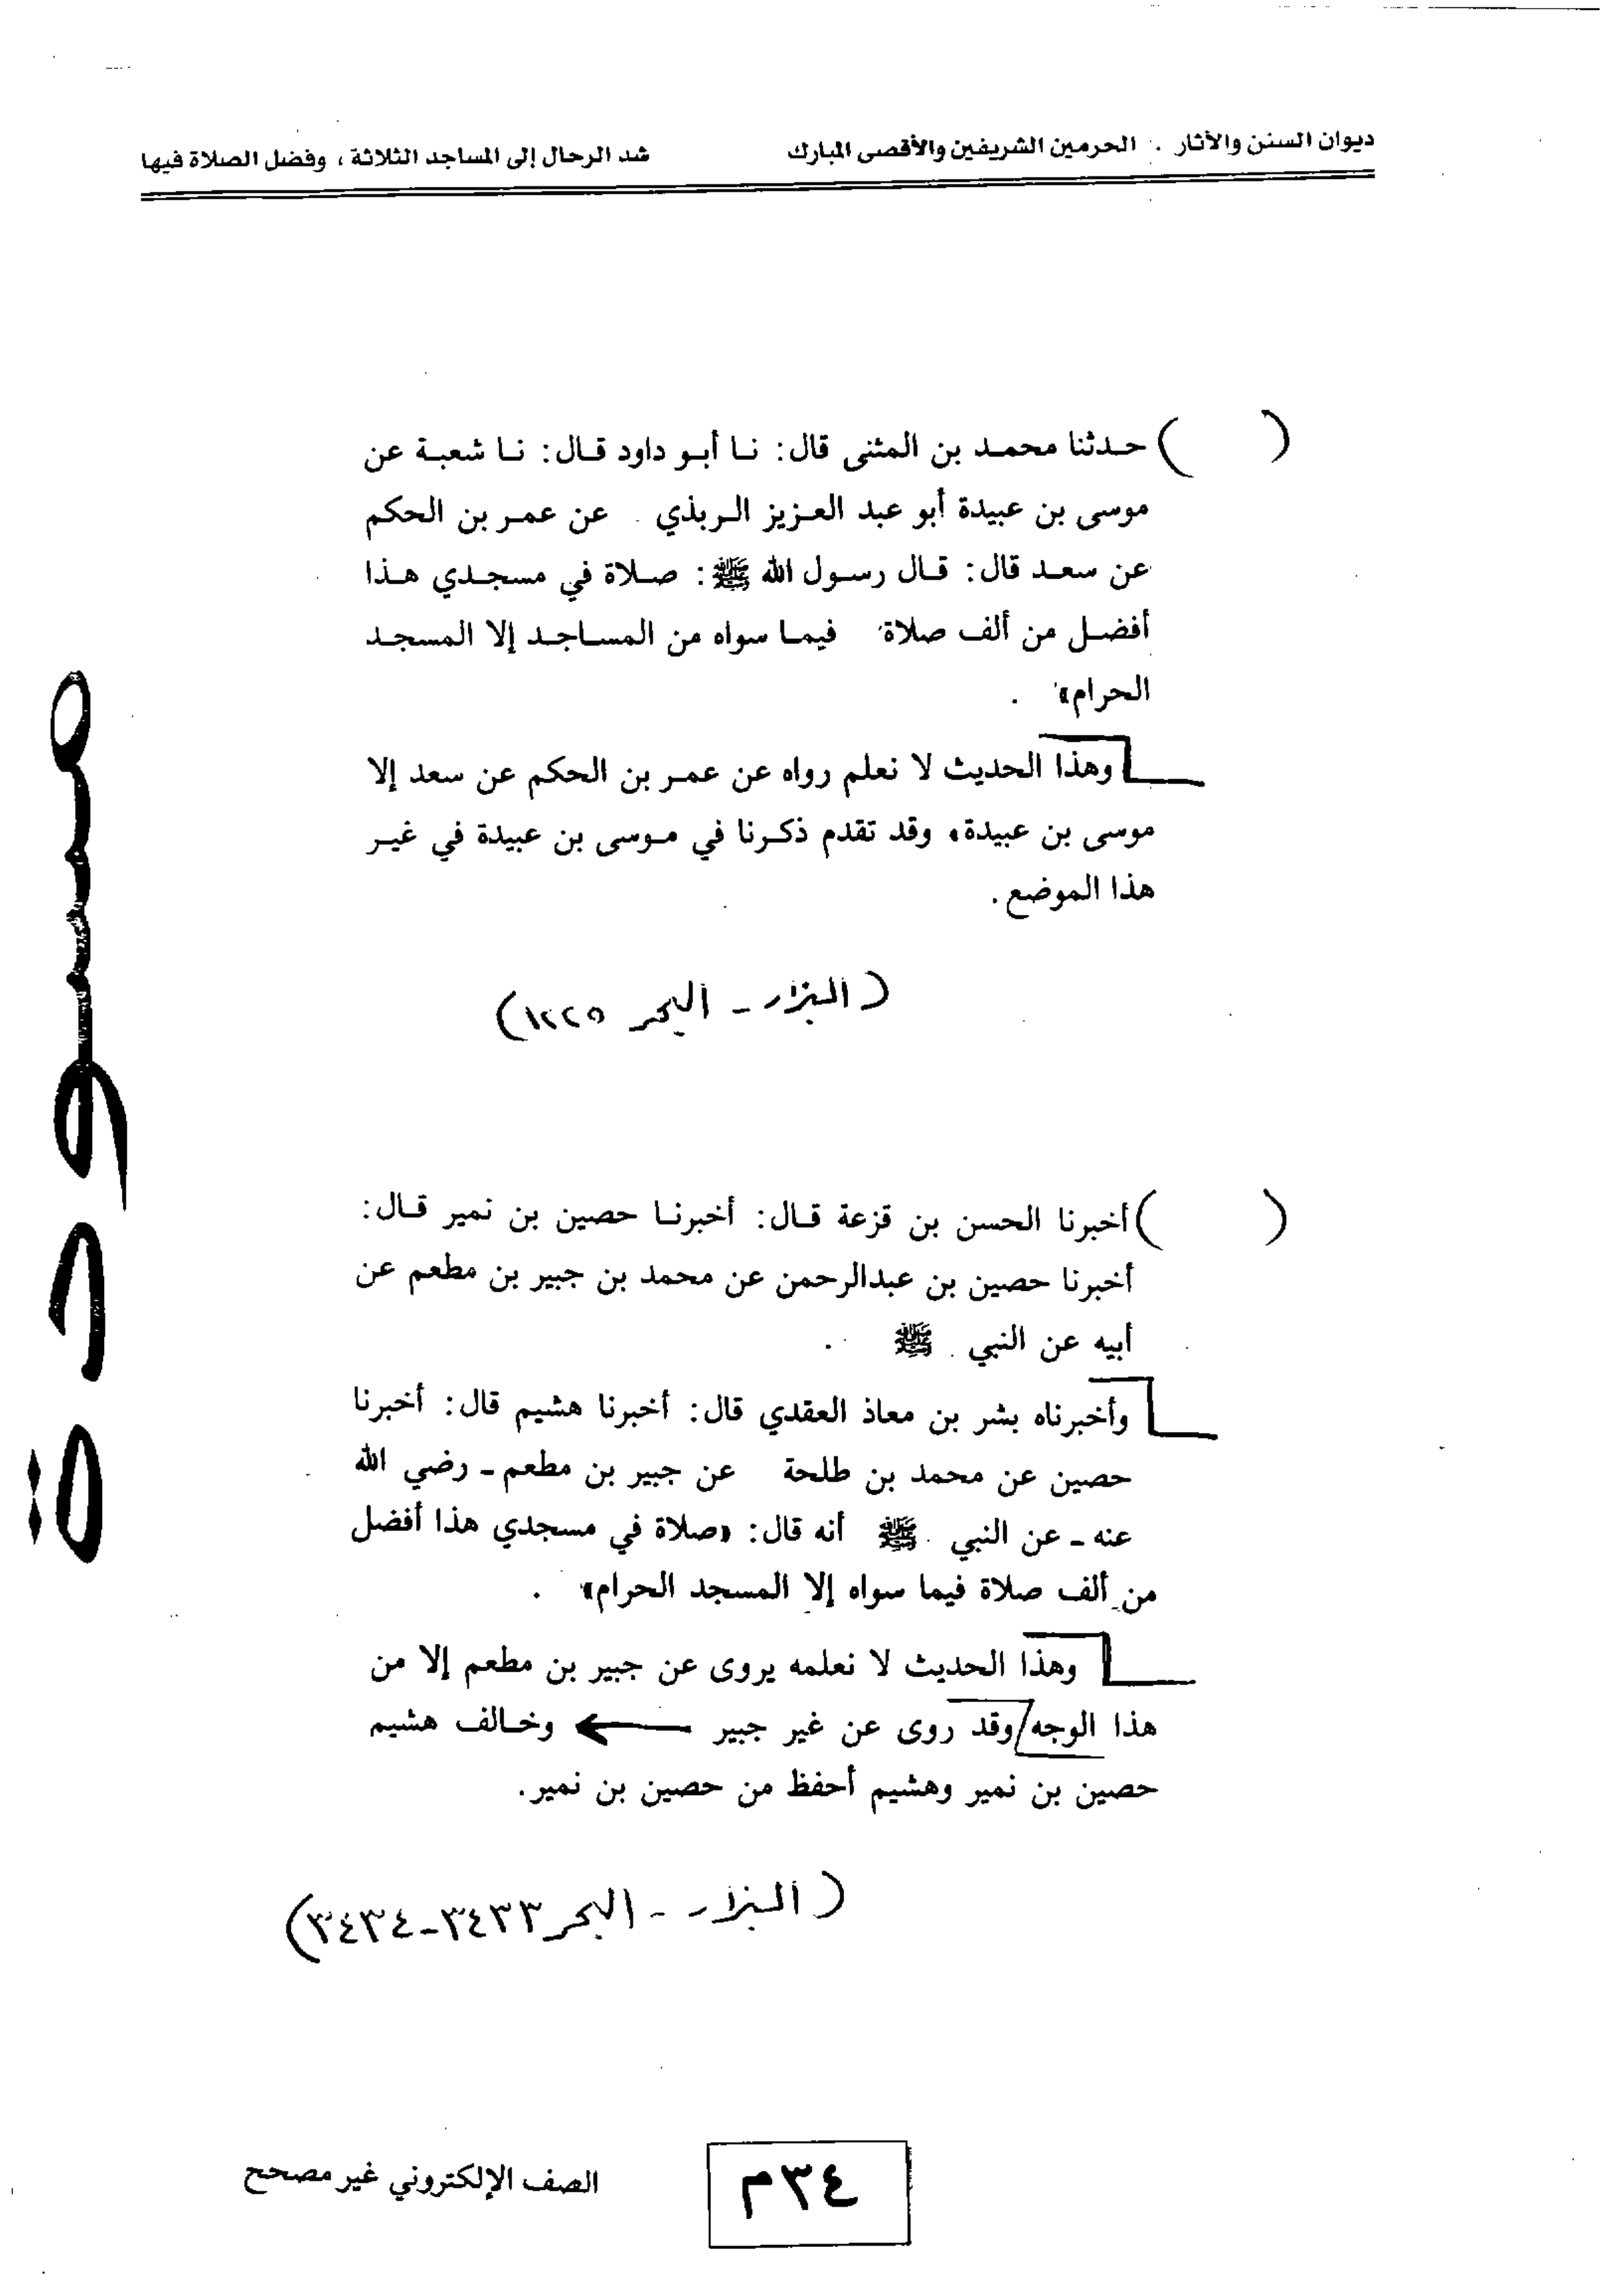 ديوان السنن والآثار . الحرمين الشريفين والأقصى المبارك
شد الرحال إلى المساجد الثلاثة ، وفضل الصلاة فيها
( ) حدثنا محمد بن المثنى قال: نا أبو داود قال: نا شعبة عن
موسى بن عبيدة أبو عبد العزيز الربذي عن عمر بن الحكم
عن سعد قال: قال رسول الله ﷺ: صلاة في مسجدي هذا
أفضل من ألف صلاة فيما سواه من المساجد إلا المسجد
الحرام» .
وهذا الحديث لا نعلم رواه عن عمر بن الحكم عن سعد إلا
موسى بن عبيدة، وقد تقدم ذكرنا في موسى بن عبيدة في غير
هذا الموضع.
(البزار - البحر ١٢٢٥)
( ) أخبرنا الحسن بن قزعة قال: أخبرنا حصين بن نمير قال:
أخبرنا حصين بن عبدالرحمن عن محمد بن جبير بن مطعم عن
أبيه عن النبي ﷺ .
وأخبرناه بشر بن معاذ العقدي قال: أخبرنا هشيم قال: أخبرنا
حصين عن محمد بن طلحة عن جبير بن مطعم - رضي الله
عنه - عن النبي ﷺ أنه قال: «صلاة في مسجدي هذا أفضل
من ألف صلاة فيما سواه إلا المسجد الحرام» .
وهذا الحديث لا نعلمه يروى عن جبير بن مطعم إلا من
هذا الوجه/وقد روى عن غير جبير ← وخالف هشيم
حصين بن نمير وهشيم أحفظ من حصين بن نمير.
(البزار - البحر ٣٤٣٣-٣٤٣٤)
مسودة
٣٤م
الصف الإلكتروني غير مصحح